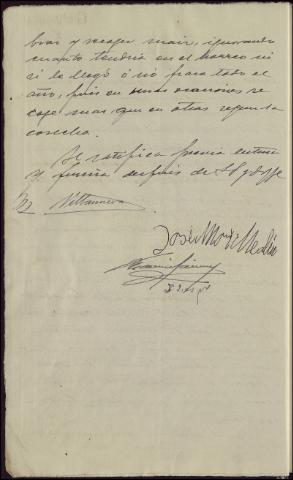 brar y recoger maiz, ignorando
cuanto tendria en el horreo ni
si le llegó ó no para todo el
año, pues en unas ocasiones re
coje mas que en otras segun la
cosecha.
Se ratifica previa lectura
y firma despues de S.S. y doy fe
Villanueva
José